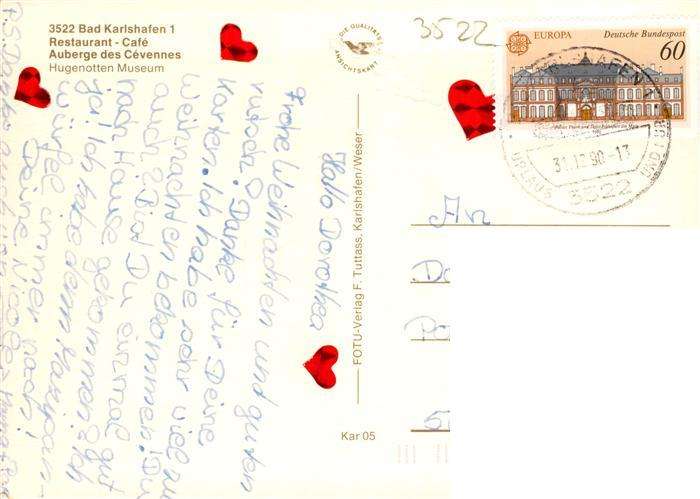 3522 Bad Karlshafen 1
Restaurant - Café
Auberge des Cévennes
Hugenotten Museum
DIE QUALITÄTS
ANSICHTSKART
3522
EUROPA Deutsche Bundespost
60
31.12.90-13
URLAUB UND KUR
3522
Hallo Dorothea
frohe Weihnachten und guten
rutsch. Danke für Deine
Karten. Ich habe sehr viel zu
weihnachten bekommen. Du
auch? Bist Du einmal gut
nach Hause gekommen? Ich
ja! Ich
würfel immer noch!
Deine Nicole
P.S. Danke auch von
FOTU-Verlag F. Tuttass, Karlshafen/Weser
Kar 05
An